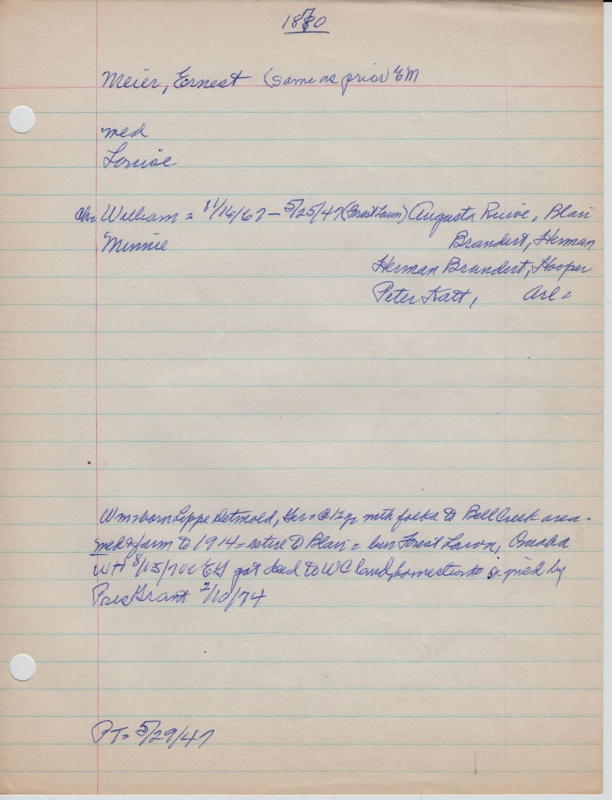 1870
Meier, Ernest (same as prior EM
med
Louise
ch= William = 11/16/67 - 5/25/47 (Forest Lawn) Augusta, Blair
Minnie Brandert, Herman
Herman Brandert, Hooper
Peter Katt, Arl =
Wm=born Lippe Detmold, Ger = @ 12 yr with folks to Bell Creek area.
med & farm to 1914 = retire to Blair = bur Forest Lawn, Omaha
WH 8/15/70 = got deed to WC land, signed by
Pres Grant 2/10/74
PT= 5/29/47